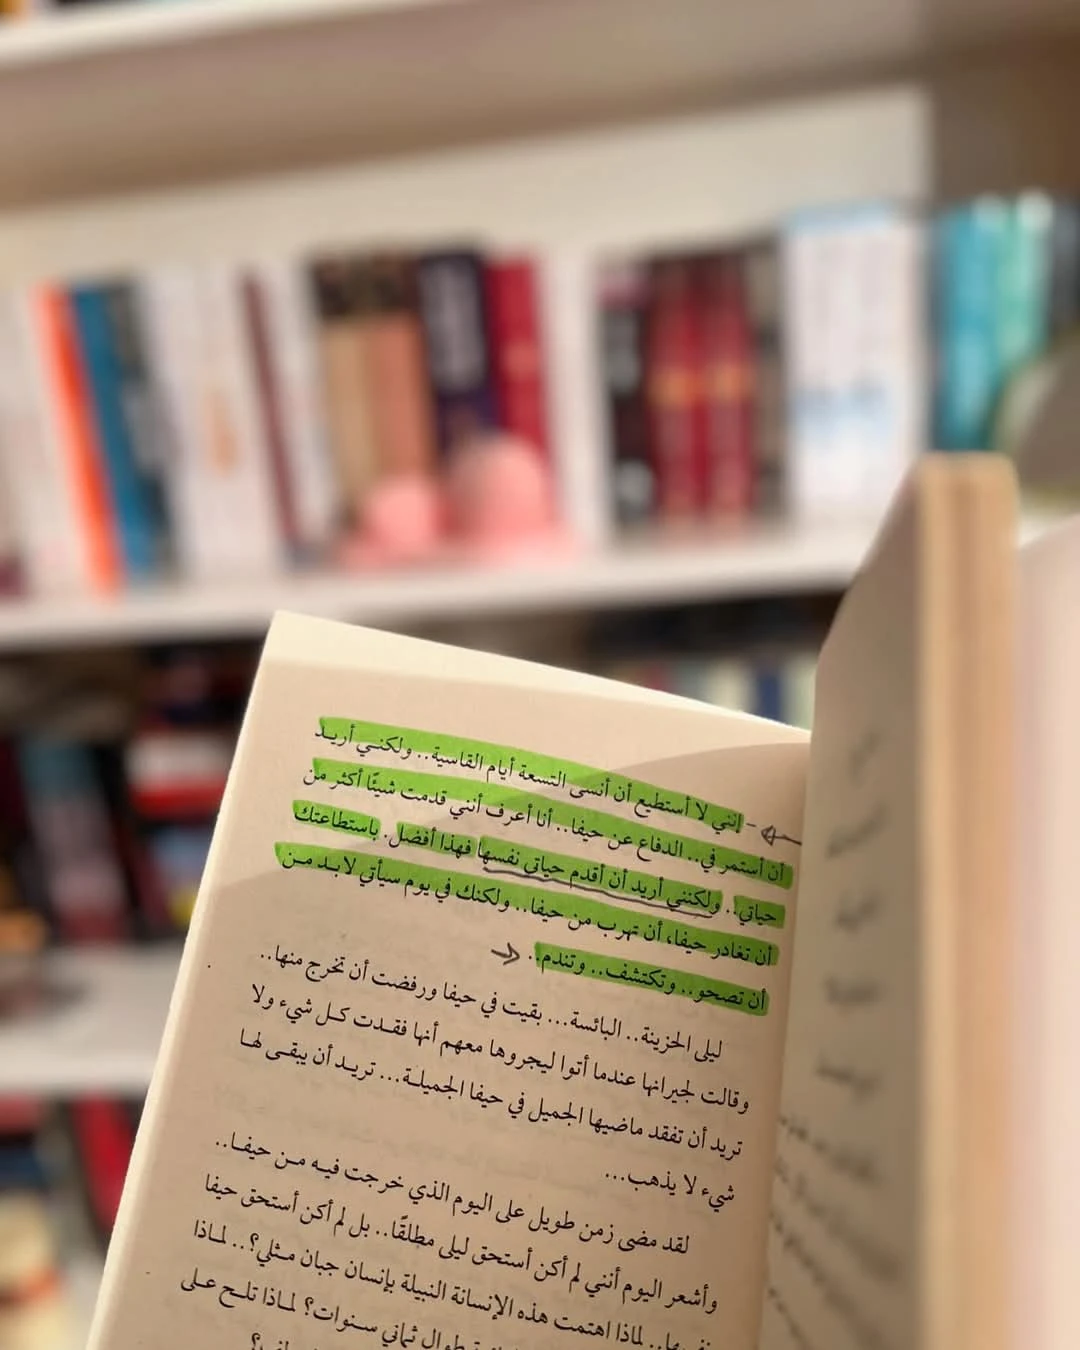 - إنني لا أستطيع أن أنسى التسعة أيام القاسية.. ولكنـي أريـد
أن أستمر في.. الدفاع عن حيفا.. أنا أعرف أنني قدمت شيئًا أكثر من
حياتي.. ولكنني أريد أن أقدم حياتي نفسها فهذا أفضل. باستطاعتك
أن تغادر حيفا، أن تهرب من حيفا.. ولكنك في يوم سيأتي لابـد مـن
أن تصحو.. وتكتشف.. وتندم..
ليلى الحزينة.. البائسة... بقيت في حيفا ورفضت أن تخرج منها..
وقالت لجيرانها عندما أتوا ليجروها معهم أنها فقـدت كـل شيء ولا
تريد أن تفقد ماضيها الجميل في حيفا الجميلـة... تريـد أن يبقـى لهـا
شيء لا يذهب...
لقد مضى زمن طويل على اليوم الذي خرجت فيـه مـن حيفـا..
وأشعر اليوم أنني لم أكن أستحق ليلى مطلقًا.. بل لم أكن أستحق حيفا
نفسها.. لماذا اهتمت هذه الإنسانة النبيلة بإنسان جبان مـثلي؟.. لمـاذا
طوال ثماني سـنوات؟ لمـاذا تلـح عـلى